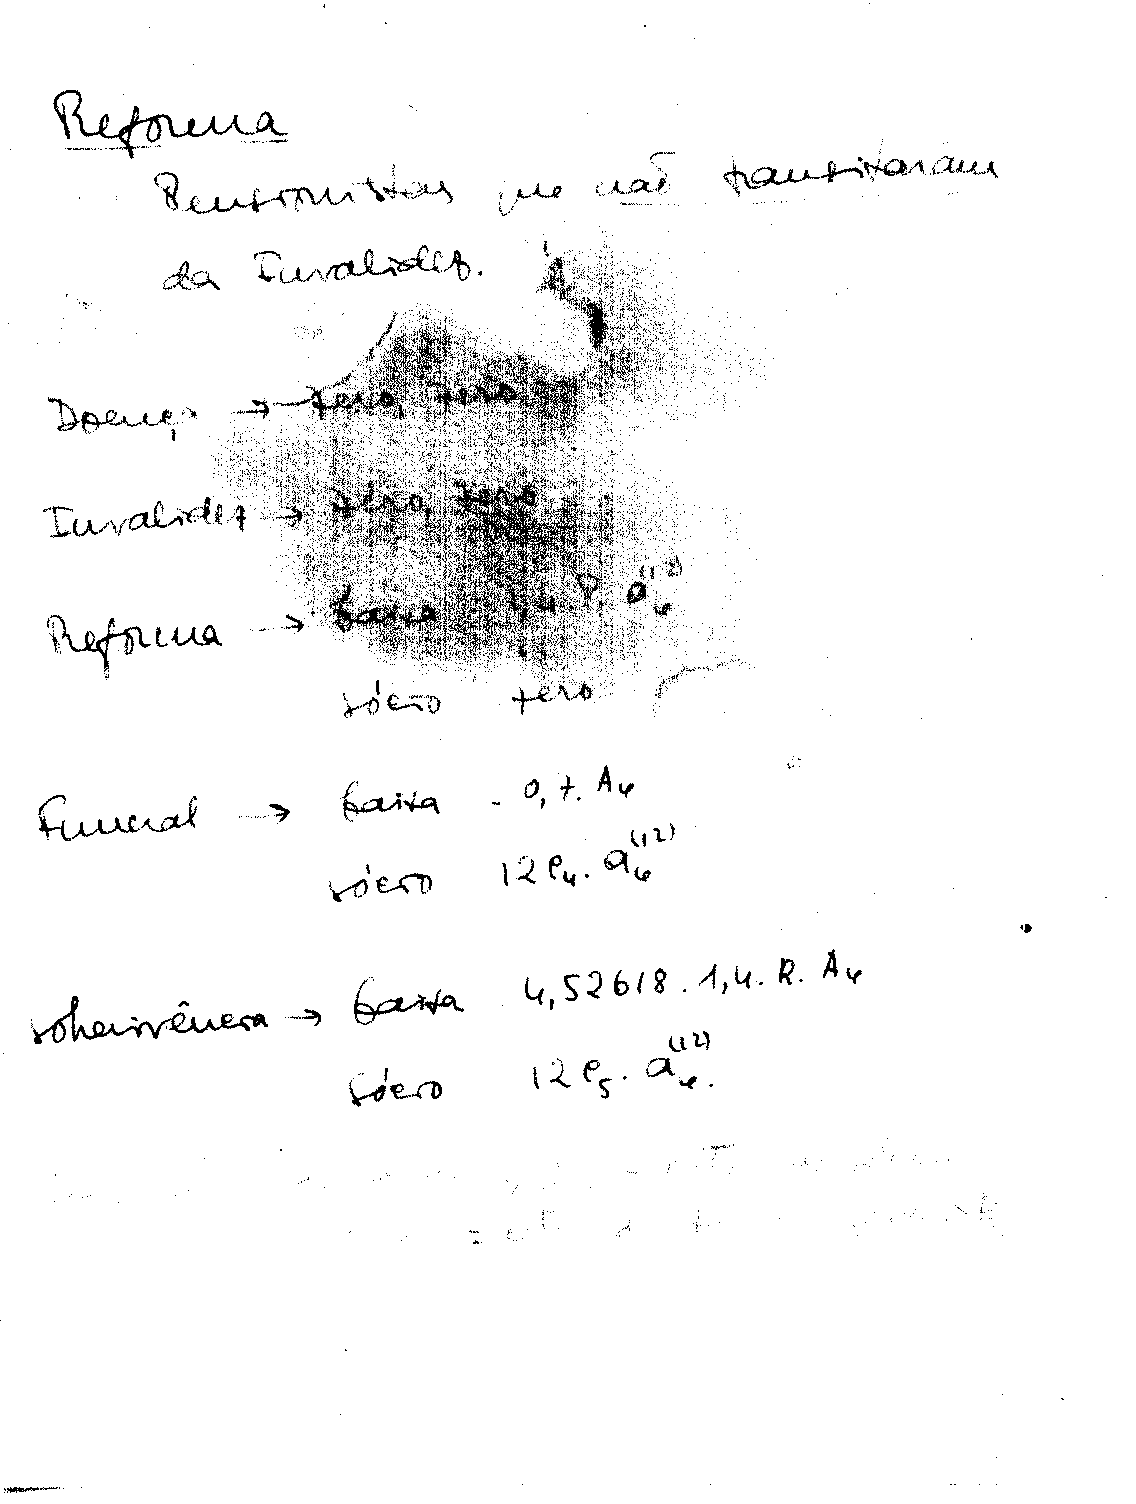 Reforma
Pensionistas que não transitaram
da Invalidez.
Doença → zero, zero
Invalidez → zero, zero
Reforma → Caixa 1,4 P. a₄⁽¹²⁾
sócio zero
Funeral → Caixa - 0,7. A₄
sócio 12 P₄. a₄⁽¹²⁾
sobrevivência → Caixa 4,52618 . 1,4. R. A₄
Sócio 12 P₅. a₄⁽¹²⁾.